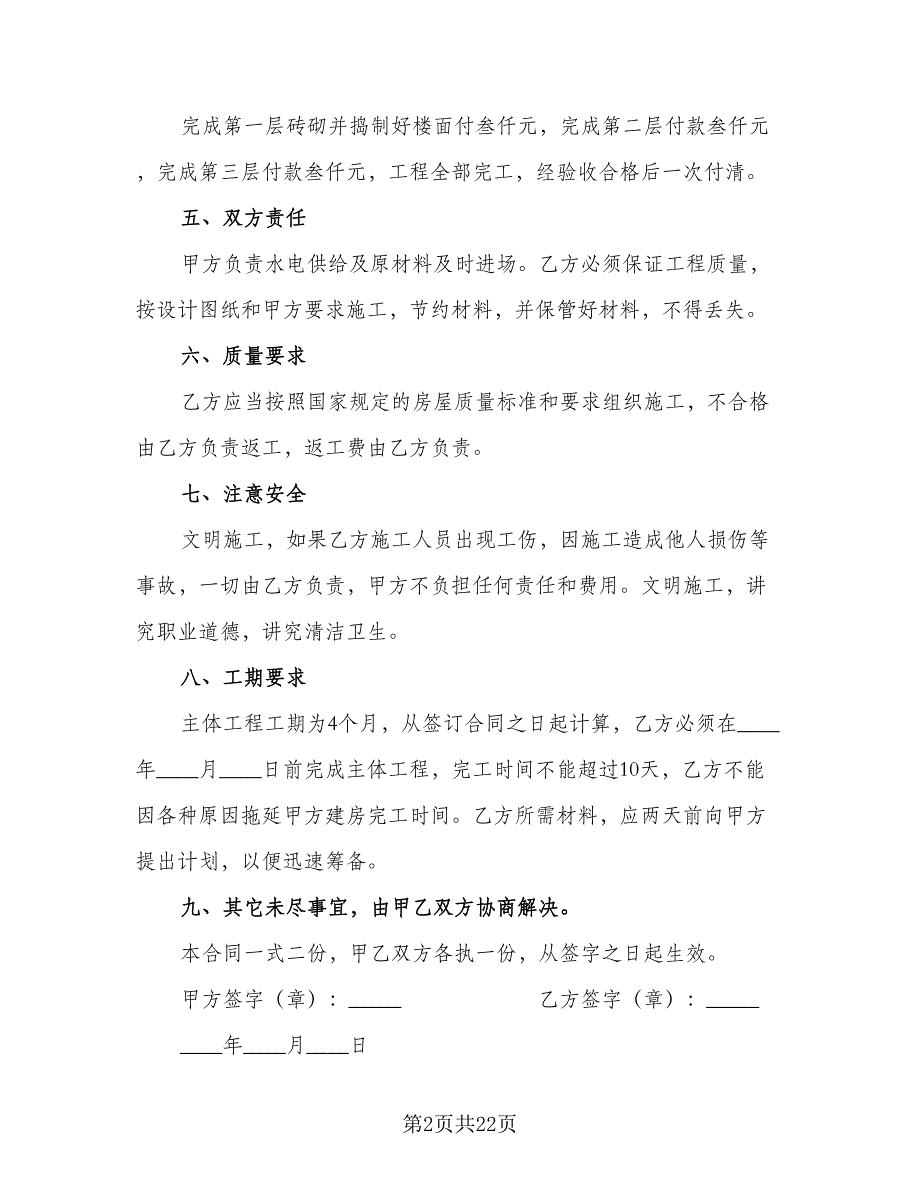 完成第一层砖砌并捣制好楼面付叁仟元，完成第二层付款叁仟元
，完成第三层付款叁仟元，工程全部完工，经验收合格后一次付清。
五、双方责任
甲方负责水电供给及原材料及时进场。乙方必须保证工程质量，
按设计图纸和甲方要求施工，节约材料，并保管好材料，不得丢失。
六、质量要求
乙方应当按照国家规定的房屋质量标准和要求组织施工，不合格
由乙方负责返工，返工费由乙方负责。
七、注意安全
文明施工，如果乙方施工人员出现工伤，因施工造成他人损伤等
事故，一切由乙方负责，甲方不负担任何责任和费用。文明施工，讲
究职业道德，讲究清洁卫生。
八、工期要求
主体工程工期为4个月，从签订合同之日起计算，乙方必须在____
年____月____日前完成主体工程，完工时间不能超过10天，乙方不能
因各种原因拖延甲方建房完工时间。乙方所需材料，应两天前向甲方
提出计划，以便迅速筹备。
九、其它未尽事宜，由甲乙双方协商解决。
本合同一式二份，甲乙双方各执一份，从签字之日起生效。
甲方签字（章）：_____ 乙方签字（章）：_____
____年____月____日
第2页共22页